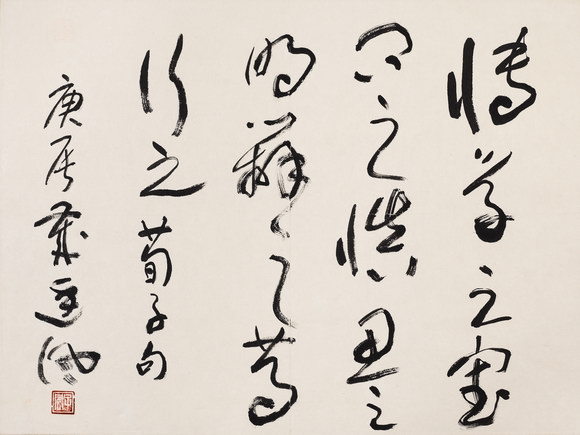 博学之審
问之慎思之
明辨之篤
行之 荀子句
庚辰